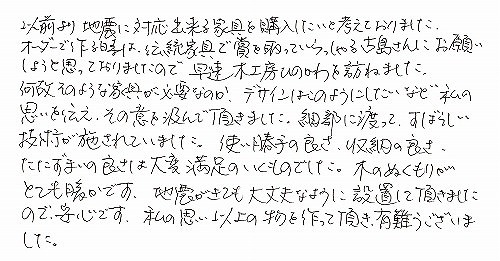 以前より地震に対応出来る家具を購入したいと考えておりました。
オーダーで作る場合は、伝統家具で賞を取っていらっしゃる古島さんにお願い
しようと思っておりましたので早速木工房ひのかわを訪ねました。
何故そのような家具が必要なのか、デザインはこのようにしたいなど私の
思いを伝え、その意を汲んで頂きました。細部に渡って、すばらしい
技術が施されていました。使い勝手の良さ、収納の良さ、
たたずまいの良さは大変満足のいくものでした。木のぬくもりが
とても暖かです。地震がきても大丈夫なように設置して頂きました
ので、安心です。私の思い以上の物を作って頂き、有難うございま
した。